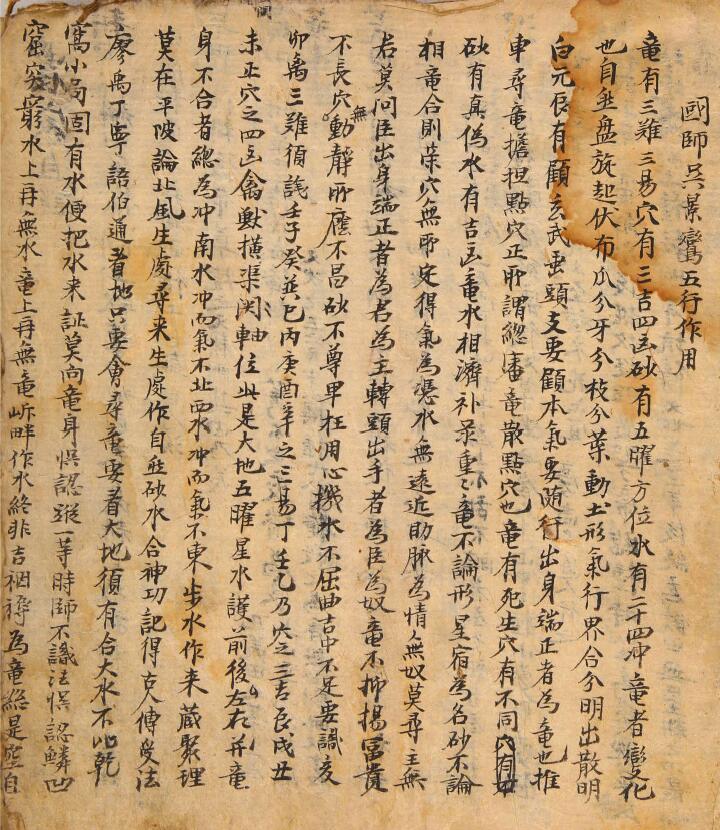 國師吳景鸞五行作用
竜有三難三易穴有三吉四凶砂有五曜方位水有二十四冲竜者變化
也自然盤旋起伏布爪分牙分枝分葉動土形氣行界合分明出散明
白元辰有顧玄武垂頭支要顧本氣要随行出身端正者為竜也推
車尋竜擔担點穴正所謂總潘竜散點穴也竜有死生穴有不同
砂有真偽水有吉凶竜水相濟补录重〻竜不論形星宿為名砂不論
相竜合則荣穴無所定得氣為憑水無遠近助脉為情無奴莫尋主無
君莫问臣出身端正者為君為主轉頭出手者為臣為奴竜不抑揚富貴
不長穴無動靜所應不昌砂不尊卑枉用心機水不屈曲吉中不足要識亥
卯禹三難須詵壬子癸巽巳丙庚酉辛之三易丁壬乙乃穴之三吉辰戌丑
未正穴之四凶禽獸横渠関軸位此是大地五曜星水護前後左右并竜
身不合者總為冲南水冲而氣不北西水冲而氣不東步水作来蔵聚理
莫在平陂論北風生處尋来生處作自然砂水合神功記得古人傳受法
廖禹丁寧語伯通看地只要會尋竜要看大地須有合大水不比乾
窩小局固有水便把水来証莫向竜身悞認蹤一等時師不識法悞認鱗凹
窟穷窮水上再無水竜上再無竜岍畔作水終非吉裀褥為竜総是空自